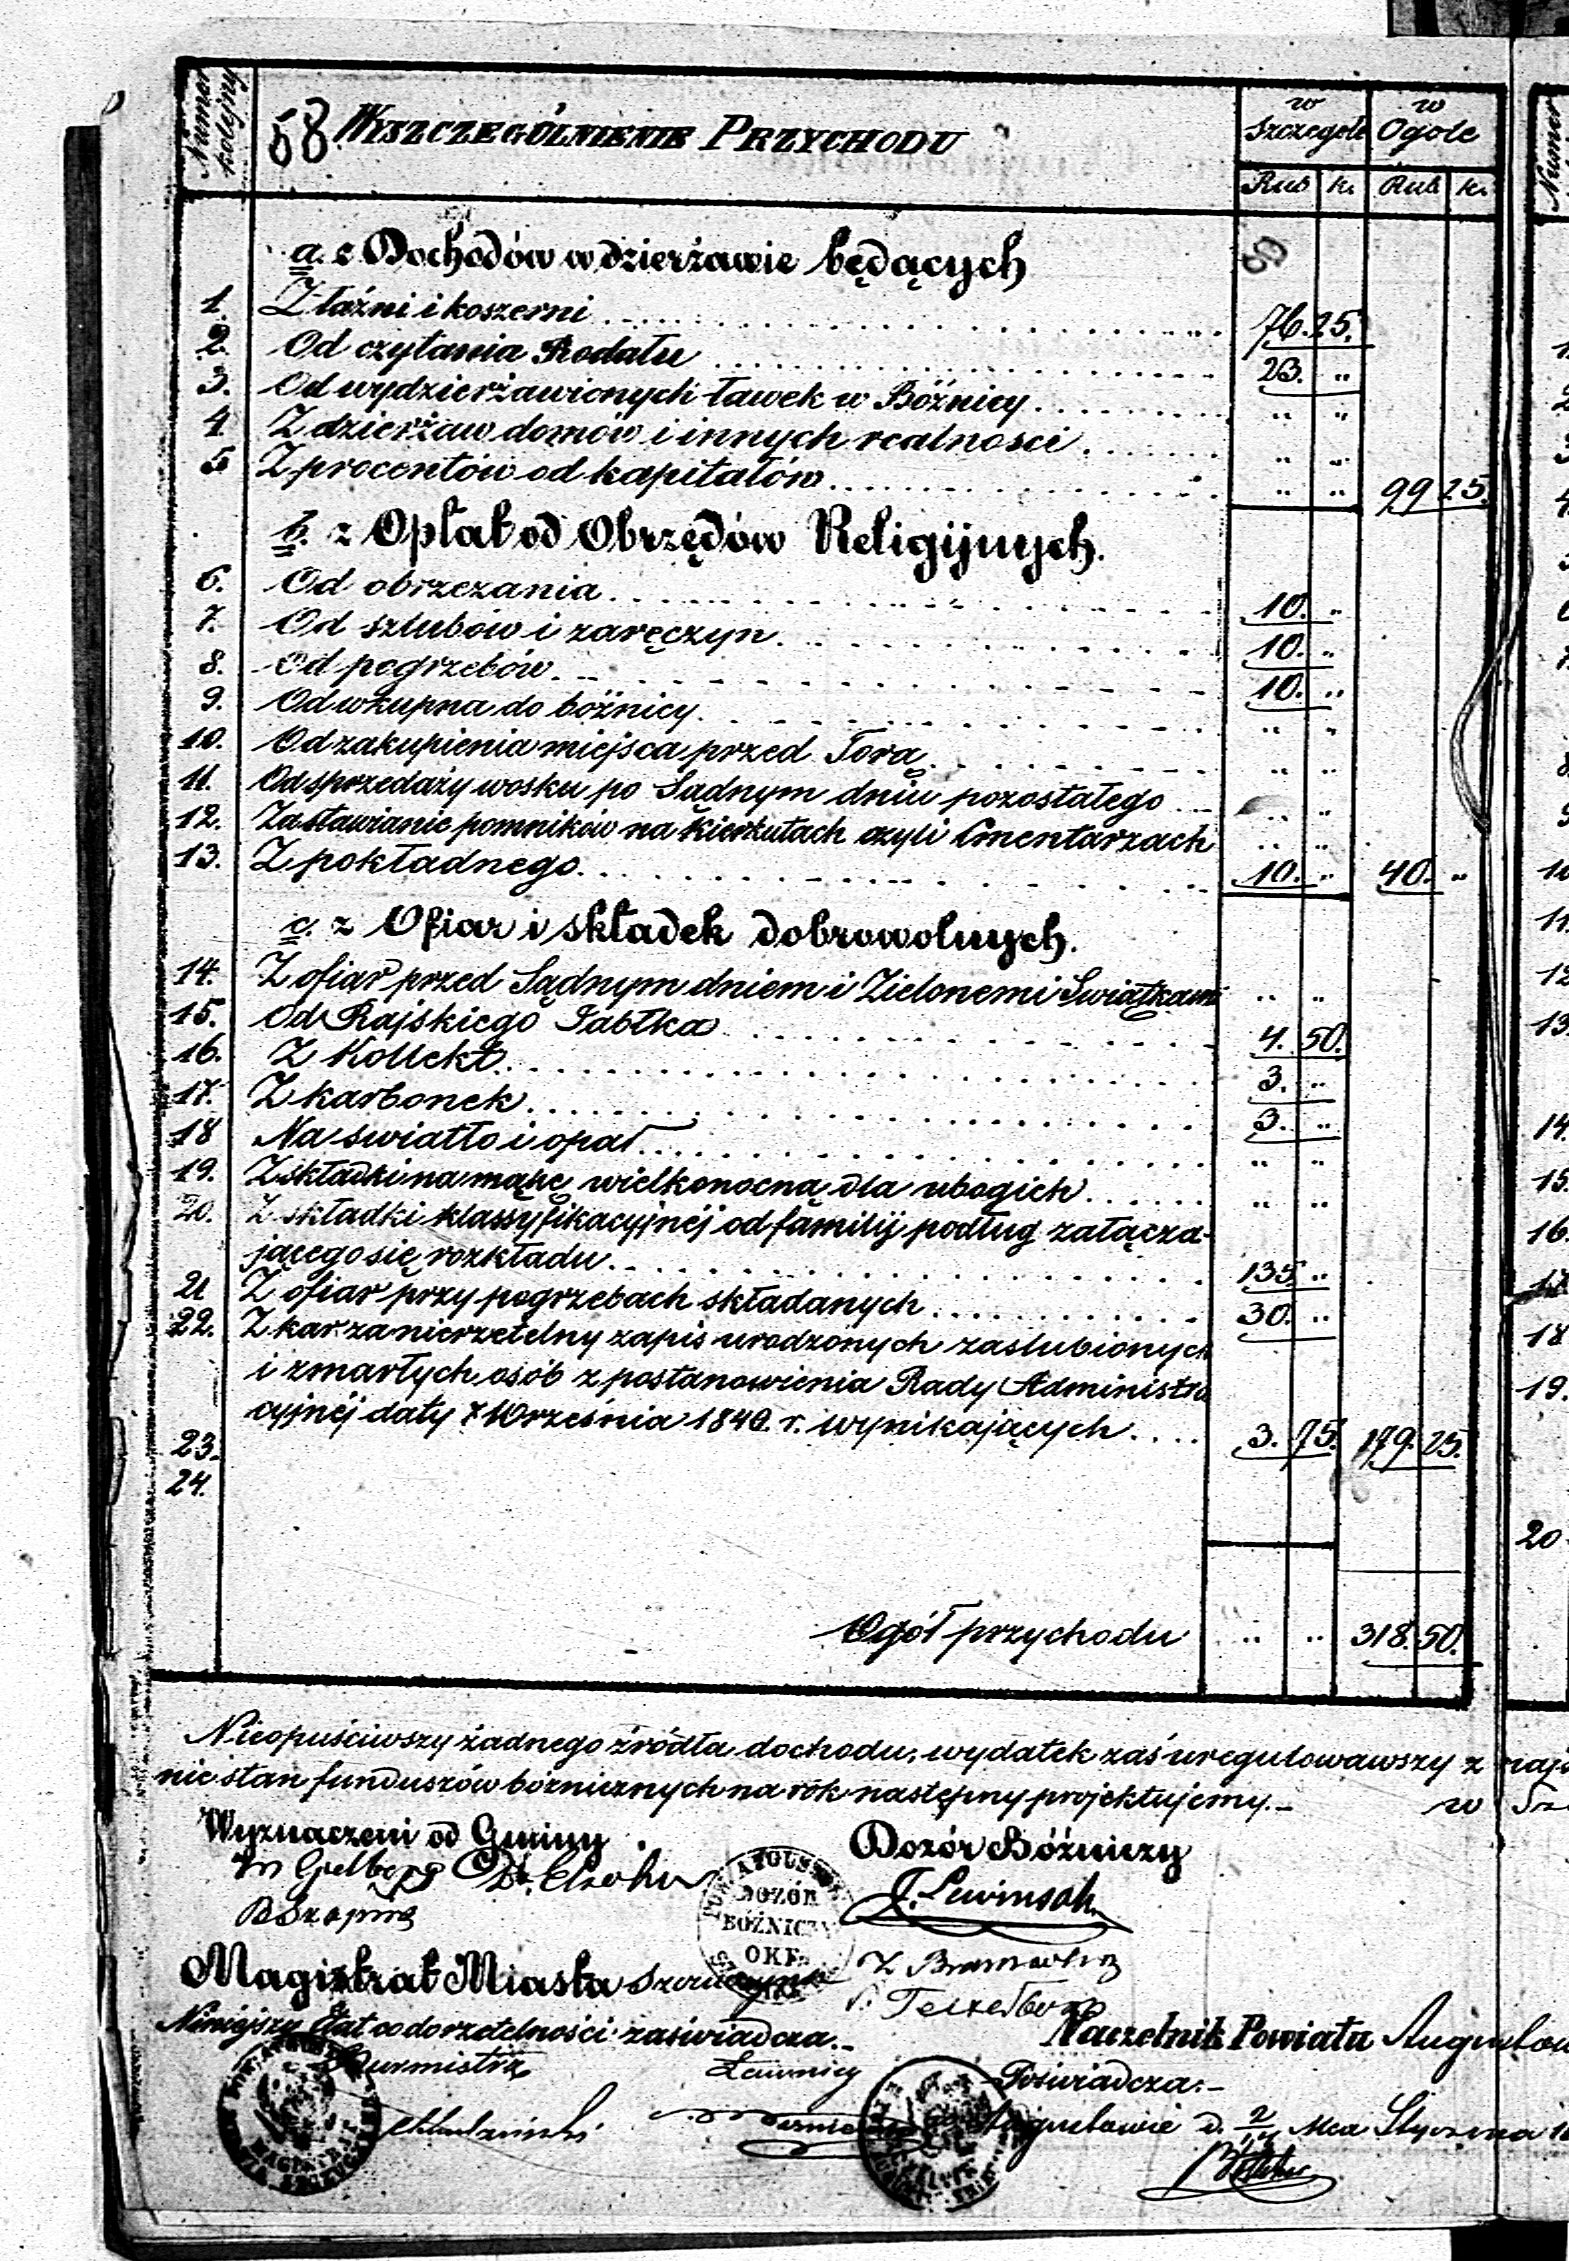 Numer kolejny
58 WYSZCZEGÓLNIENIE PRZYCHODU
w Szczegole
w Ogole
Rub k. Rub k.
a. z Dochodów w dzierżawie będących
1. Z łaźni i koszerni 76. 25.
2. Od czytania Rodału 23. "
3. Od wydzierżawionych ławek w Bóżnicy " "
4 Z dzierżaw domów i innych realnosci " "
5 Z procentów od kapitałów " " 99 25.
b. z Opłat od Obrzędów Religijnych.
6. Od obrzezania 10. "
7. Od szlubów i zaręczyn 10. "
8. Od pogrzebów 10. "
9. Od wkupna do bóżnicy " "
10. Od zakupienia miejsca przed Torą " "
11. Od sprzedaży wosku po Sądnym dniu pozostałego " "
12. Za stawianie pomników na Kierkutach czyli Cmentarzach " "
13. Z pokładnego 10. " 40. "
c. z Ofiar i składek dobrowolnych.
14. Z ofiar przed Sądnym dniem i Zielonemi Swiątkami " "
15. Od Rajskiego Jabłka 4. 50.
16. Z Kollekt 3. "
17. Z karbonek 3. "
18 Na swiatło i opał " "
19. Z składki na mąkę wielkonocną dla ubogich " "
20. Z składki klassyfikacyjnéj od familij podług załącza-
jącego się rozkładu 135 "
21 Z ofiar przy pogrzebach składanych 30. "
22. Z kar za nierzetelny zapis urodzonych zaslubionych
i zmarłych osób z postanowienia Rady Administra
cyjnéj daty 7 Września 1840. r. wynikających 3. 75. 179. 25.
23.
24.
Ogół przychodu " " 318. 50.
Nieopuściwszy żadnego źródła dochodu, wydatek zaś uregulowawszy z
nie stan funduszów bożnicznych na rok następny projektujemy.
w
Wyznaczeni od Gminy
Dozór Bóżniczy
J. Lewinsoh.
DOZÓR
BÓŻNICZY
OKR.
Magistrat Miasta Szczuczyna
Niniejszy Etat co do rzetelności zaświadcza.
Naczelnik Powiatu Augustow
Burmistrz
Ławnicy
Poświadcza.
w Augustowie d. 2/14 Mca Stycznia